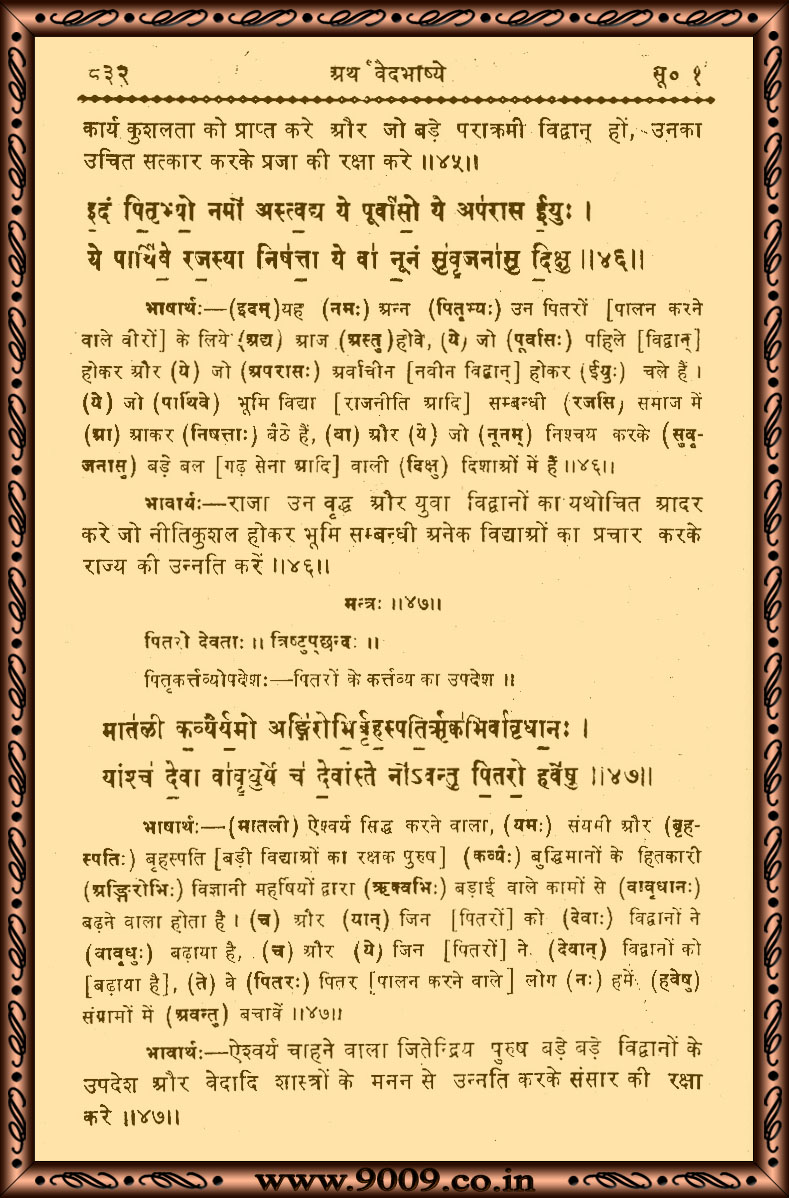 ८३२ अथर्ववेदभाष्ये सू० १
कार्य कुशलता को प्राप्त करे और जो बड़े पराक्रमी विद्वान् हों, उनका
उचित सत्कार करके प्रजा की रक्षा करे ॥४५॥
इ॒दं पि॒तृभ्यो॒ नमो॑ अस्त्व॒द्य ये पूर्वा॑सो॒ ये अप॑रास ई॒युः ।
ये पार्थि॑वे॒ रज॒स्या निष॑त्ता॒ ये वा॑ नू॒नं सु॑वृ॒जना॑सु दि॒क्षु ॥४६॥
भाषार्थः—(इदम्)यह (नमः) अन्न (पितृभ्यः) उन पितरों [पालन करने
वाले वीरों] के लिये (अद्य) आज (अस्तु)होवे, (ये) जो (पूर्वासः) पहिले [विद्वान्]
होकर और (ये) जो (अपरासः) अर्वाचीन [नवीन विद्वान्] होकर (ईयुः) चले हैं ।
(ये) जो (पार्थिवे) भूमि विद्या [राजनीति आदि] सम्बन्धी (रजसि) समाज में
(आ) आकर (निषत्ताः) बैठे हैं, (वा) और (ये) जो (नूनम्) निश्चय करके (सुवृ-
जनासु) बड़े बल [गढ़ सेना आदि] वाली (दिक्षु) दिशाओं में हैं ॥४६॥
भावार्थः—राजा उन वृद्ध और युवा विद्वानों का यथोचित आदर
करे जो नीतिकुशल होकर भूमि सम्बन्धी अनेक विद्याओं का प्रचार करके
राज्य की उन्नति करें ॥४६॥
मन्त्रः ॥४७॥
पितरो देवताः ॥ त्रिष्टुप्छन्दः ॥
पितृकर्त्तव्योपदेशः—पितरों के कर्त्तव्य का उपदेश ॥
मात॑ली क॒व्यैर्य॒मो अङ्गि॑रोभि॒र्बृह॒स्पति॒र्ऋक्व॑भिर्वावृधा॒नः ।
यांश्च॑ दे॒वा वा॑वृ॒धुर्ये च॑ दे॒वांस्ते नो॑ऽवन्तु पि॒तरो॒ हवे॑षु ॥४७॥
भाषार्थः—(मातली) ऐश्वर्य सिद्ध करने वाला, (यमः) संयमी और (बृह-
स्पतिः) बृहस्पति [बड़ी विद्याओं का रक्षक पुरुष] (कव्यैः) बुद्धिमानों के हितकारी
(अङ्गिरोभिः) विज्ञानी महर्षियों द्वारा (ऋक्वभिः) बड़ाई वाले कामों से (वावृधानः)
बढ़ने वाला होता है । (च) और (यान्) जिन [पितरों] को (देवाः) विद्वानों ने
(वावृधुः) बढ़ाया है, (च) और (ये) जिन [पितरों] ने (देवान्) विद्वानों को
[बढ़ाया है], (ते) वे (पितरः) पितर [पालन करने वाले] लोग (नः) हमें (हवेषु)
संग्रामों में (अवन्तु) बचावें ॥४७॥
भावार्थः—ऐश्वर्य चाहने वाला जितेन्द्रिय पुरुष बड़े बड़े विद्वानों के
उपदेश और वेदादि शास्त्रों के मनन से उन्नति करके संसार की रक्षा
करे ॥४७॥
www.9009.co.in